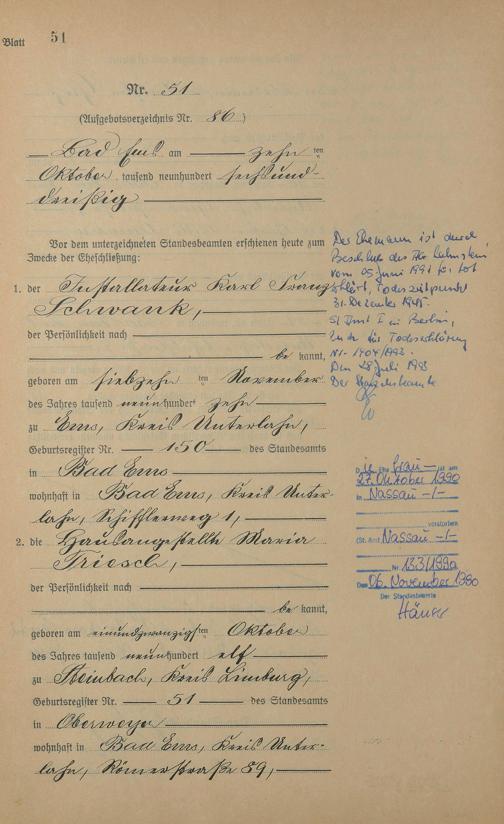 Blatt 51
Nr. 51
(Aufgebotsverzeichnis Nr. 86)
Bad Ems am zehn ten
Oktober tausend neunhundert sechsund-
dreißig
Vor dem unterzeichneten Standesbeamten erschienen heute zum
Zwecke der Eheschließung:
1. der Installateur Karl Franz
Schwank,
der Persönlichkeit nach
be kannt,
geboren am siebzehn ten November
des Jahres tausend neunhundert zehn
zu Ems, Kreis Unterlahn,
Geburtsregister Nr. 150 des Standesamts
in Bad Ems
wohnhaft in Bad Ems, Kreis Unter-
lahn, Schifflerweg 1,
2. die Hausangestellte Maria
Triesch,
der Persönlichkeit nach
be kannt,
geboren am einundzwanzigsten Oktober
des Jahres tausend neunhundert elf
zu Steinbach, Kreis Limburg,
Geburtsregister Nr. 51 des Standesamts
in Oberweyer
wohnhaft in Bad Ems, Kreis Unter-
lahn, Römerstraße 89,
Der Ehemann ist durch
Beschluß des AG Lahnstein
vom 05. Juni 1991 für tot
erklärt, Todeszeitpunkt
31. Dezember 1945.
St Amt I in Berlin,
Buch für Todeserklärung
Nr. 1904/1993.
Den 28. Juli 1993
Der Standesbeamte
Die Ehefrau ist am
27. Oktober 1990
in Nassau -/-
verstorben
(St. Amt Nassau -/-
Nr. 133/1990
Den 06. November 1990
Der Standesbeamte